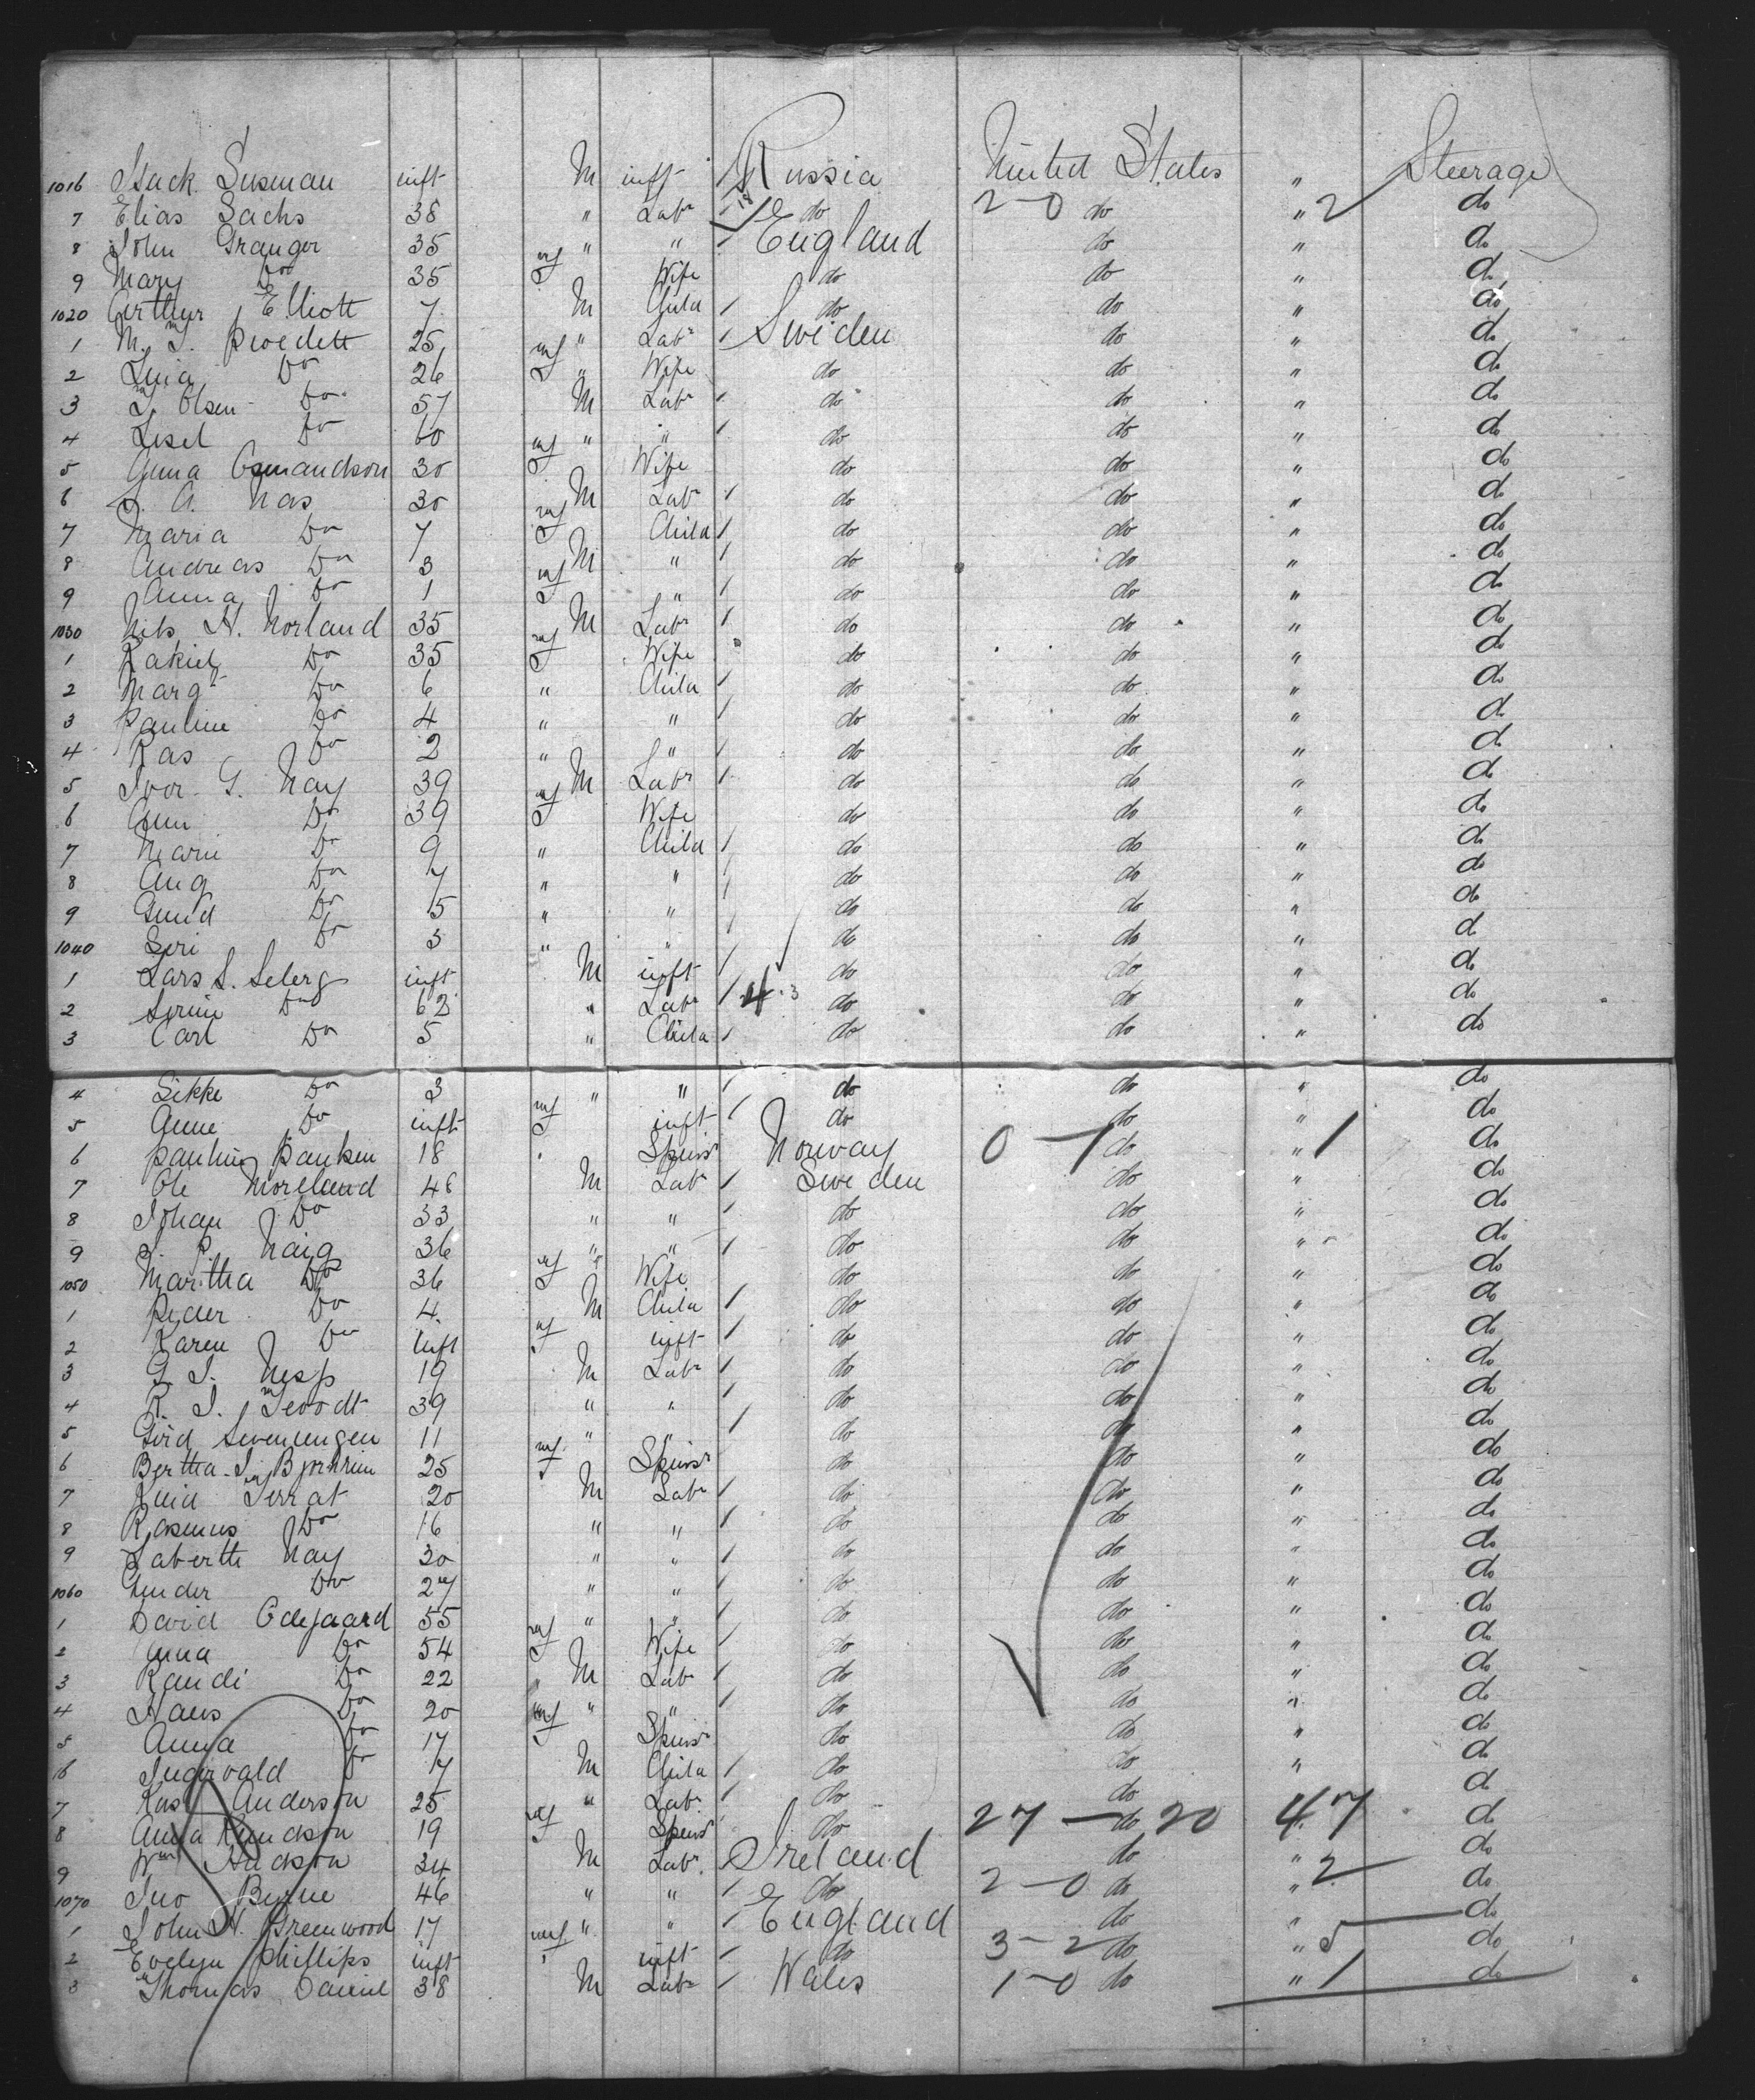 1016 Isack Susman inft M inft 1 Russia United States " Steerage
7 Elias Sachs 38 " Labr 1 do 2-0 do " 2 do
8 John Granger 35 " " 1 England do " do
9 Mary Do 35 F Wife do do " do
1020 Arthur Elliott 7 M Child 1 do do " do
1 M. T. 25 " Labr 1 Sweden do " do
2 Do 26 F " Wife do do " do
3 T. Olsen Do 57 M Labr 1 do do " do
4 Do 60 " " 1 do do " do
5 Anna Osmundson 30 F Wife do do " do
6 A. Nas 30 M Labr 1 do do " do
7 Maria Do 7 F Child 1 do do " do
8 Andreas Do 3 M " 1 do do " do
9 Anna Do 1 F " 1 do do " do
1030 Nils H. Norland 35 M Labr 1 do do " do
1 Rakiel Do 35 F Wife do do " do
2 Margt Do 6 " Child 1 do do " do
3 Pauline Do 4 " " 1 do do " do
4 Ras Do 2 " " 1 do do " do
5 Ivor G. Nay 39 M Labr 1 do do " do
6 Ann Do 39 F Wife do do " do
7 Marie Do 9 " Child 1 do do " do
8 Aug Do 7 " " 1 do do " do
9 Gund Do 5 " " 1 do do " do
1040 Siri Do 3 " " 1 do do " do
1 Lars S. Seberg inft M inft 1 do do " do
2 Do 62 " Labr 1 do do " do
3 Carl Do 5 " Child 1 do do " do
4 Sikke Do 3 " " 1 do do " do
5 Anne Do inft F inft 1 do do " do
6 Pauline 18 Spinsr Norway 0-1 do " 1 do
7 Ole Moreland 48 M Labr 1 Sweden do " do
8 Johan Do 33 " " 1 do do " do
9 P. Naig 36 " " 1 do do " do
1050 Martha Do 36 F Wife do do " do
1 Peder Do 4 M Child 1 do do " do
2 Karen Do inft F inft 1 do do " do
3 G. I. Nesp 19 M Labr 1 do do " do
4 R. I. 39 " " 1 do do " do
5 11 " " 1 do do " do
6 Bertha 25 F Spinsr do do " do
7 20 M Labr 1 do do " do
8 Rasmus Do 16 " " 1 do do " do
9 Nay 30 " " 1 do do " do
1060 Gunder Do 27 " " 1 do do " do
1 David Odegaard 55 " " 1 do do " do
2 Anna Do 54 F Wife 1 do do " do
3 Randi Do 22 M Lab 1 do do " do
4 Hans Do 20 " " 1 do do " do
5 Anna Do 17 F Spinsr do do " do
16 Ingirvald Do 7 M Child 1 do do " do
7 Anderson 25 " Labr 1 do do do
8 Anna Knudson 19 F Spinsr do 27 - do 20 47 do
9 Wm Hudson 34 M Labr Ireland do " do
1070 Jno Byrne 46 " " 1 do 2-0 do " 2 do
1 John H. Greenwood 17 " " 1 England do " do
2 Evelyn Phillips inft inft 1 do 3-2 do " 5 do
3 Thomas Daniel 38 M Labr 1 Wales 1-0 do " 1 do